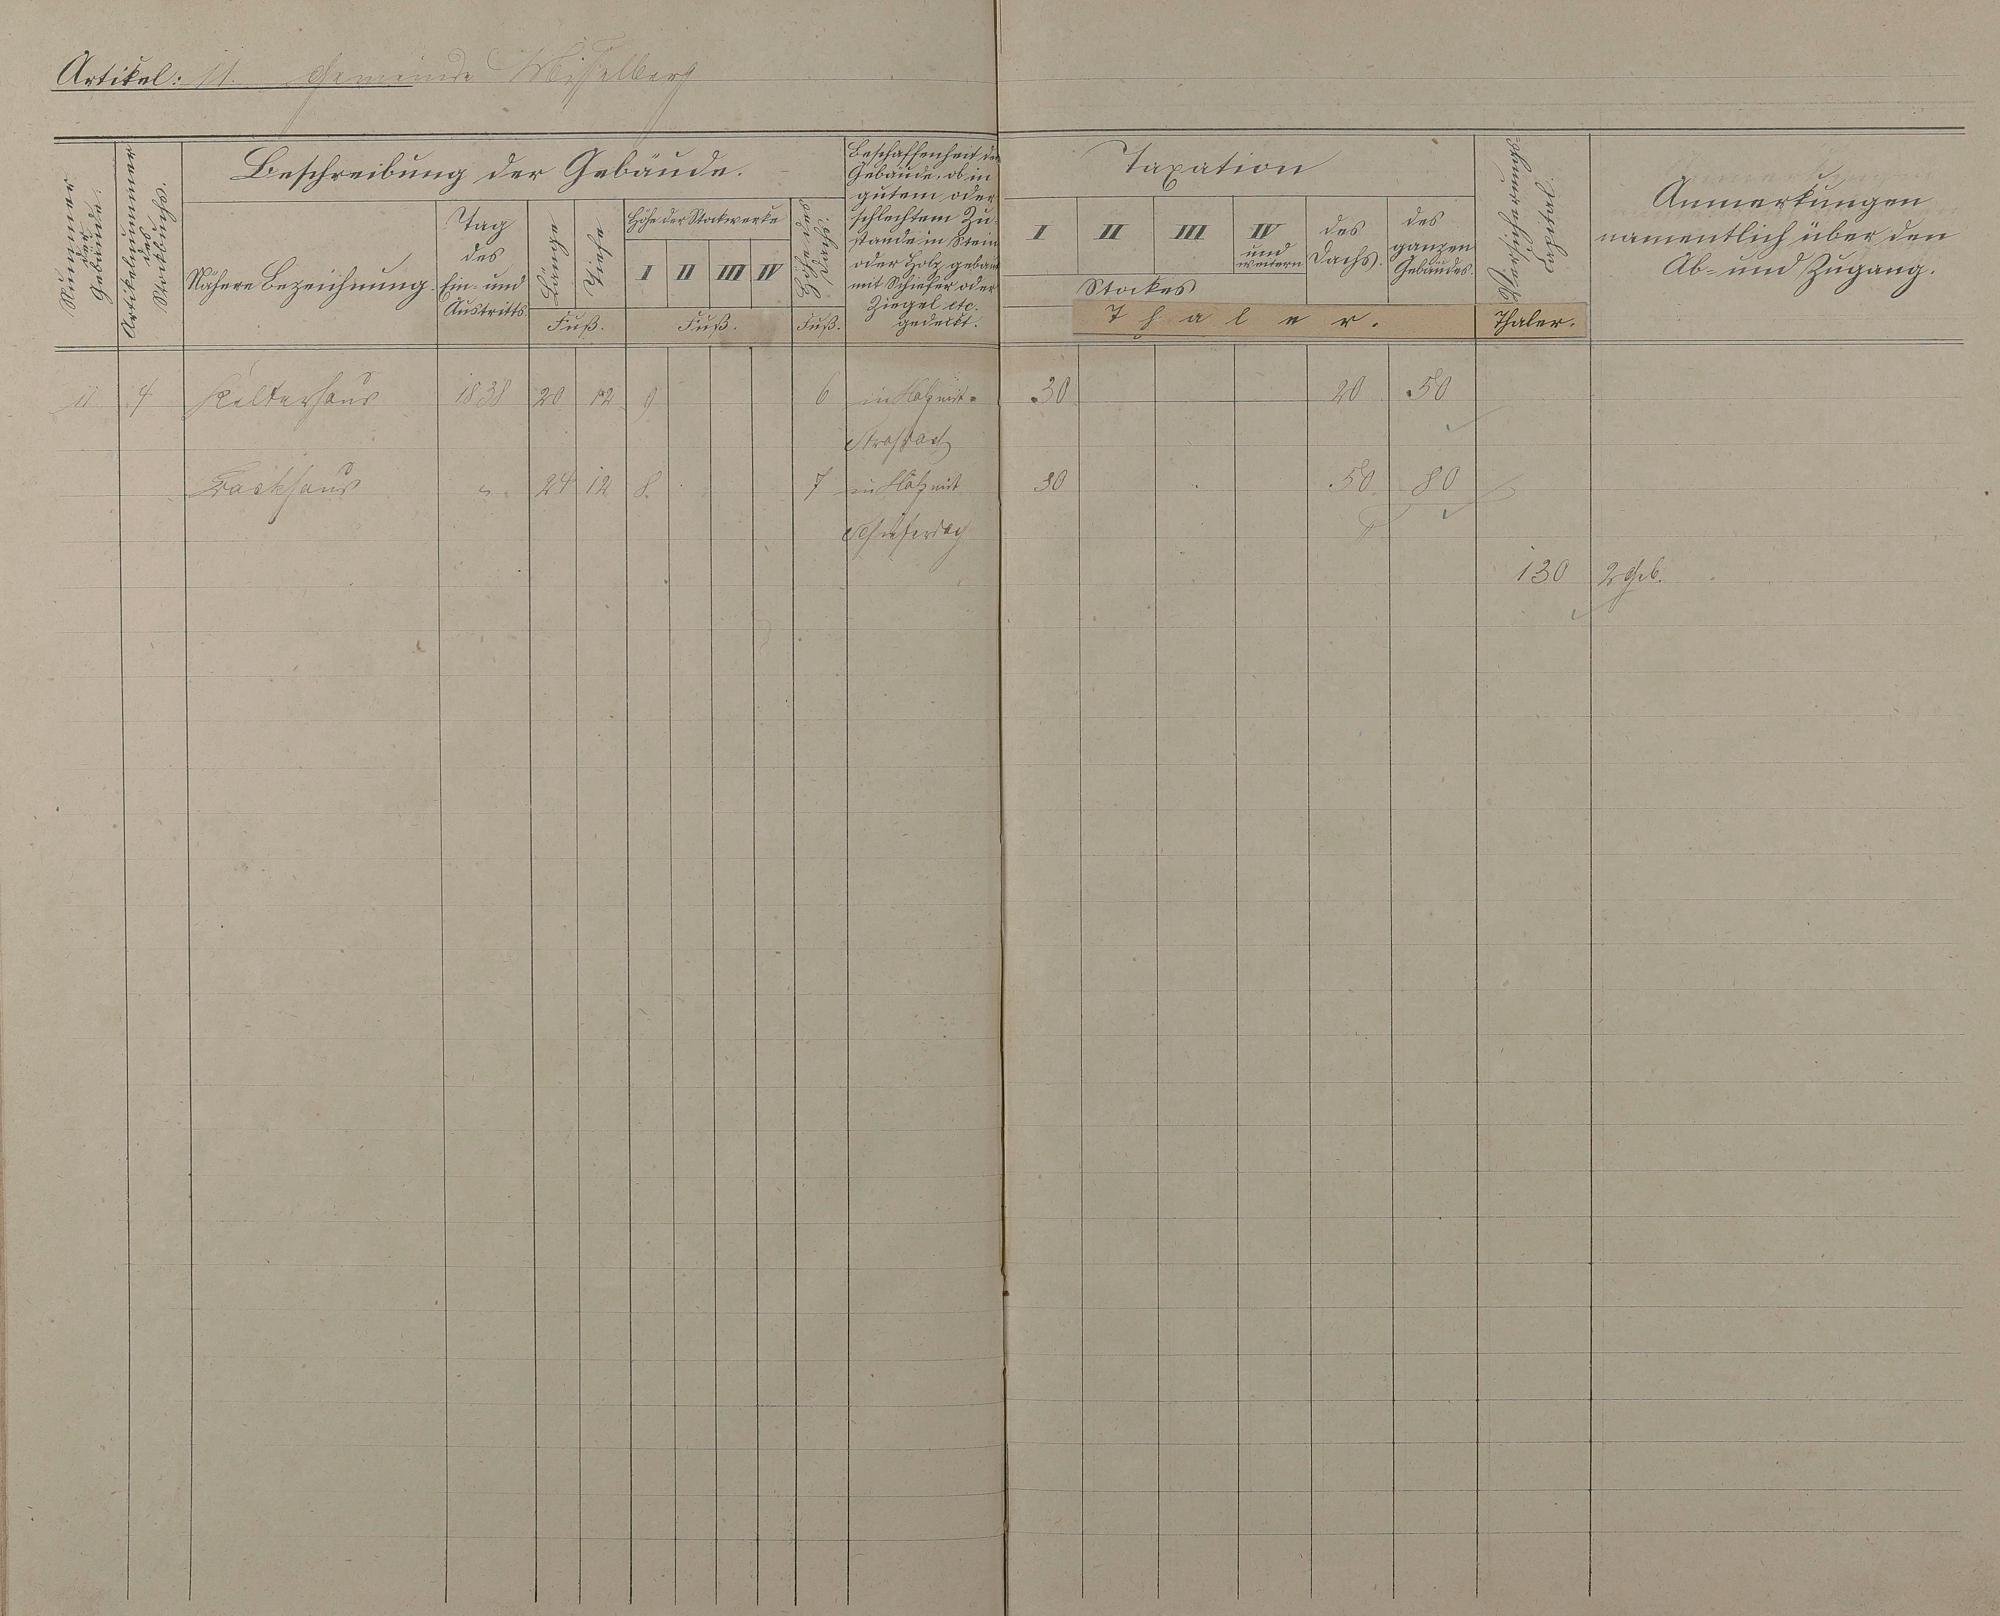 Artikel: 11. Gemeinde Misselberg
Nummer der Gebäude.
Artikelnummer des Stockbuchs.
Beschreibung der Gebäude.
Nähere Bezeichnung.
Tag des Ein- und Austritts.
Länge
Tiefe
Fuß.
Höhe der Stockwerke
I II III IV
Fuß.
Höhe des Dachs.
Fuß.
Beschaffenheit der
Gebäude, ob in
gutem oder
schlechtem Zu-
stande in Stein
oder Holz gebaut
mit Schiefer oder
Ziegel etc.
gedeckt.
Taxation
I II III IV und weitern
Stockes
des Dachs.
des ganzen Gebäudes.
Thaler.
Versicherungs Capital.
Thaler.
Anmerkungen
namentlich über den
Ab- und Zugang.
11 4 Kelterhaus 1838 20 12 9 6 in Holz mit 30 20 50
Strohdach
Backhaus " 24 12 8 7 in Holz mit 30 50 80
Schieferdach
130 2 Geb.